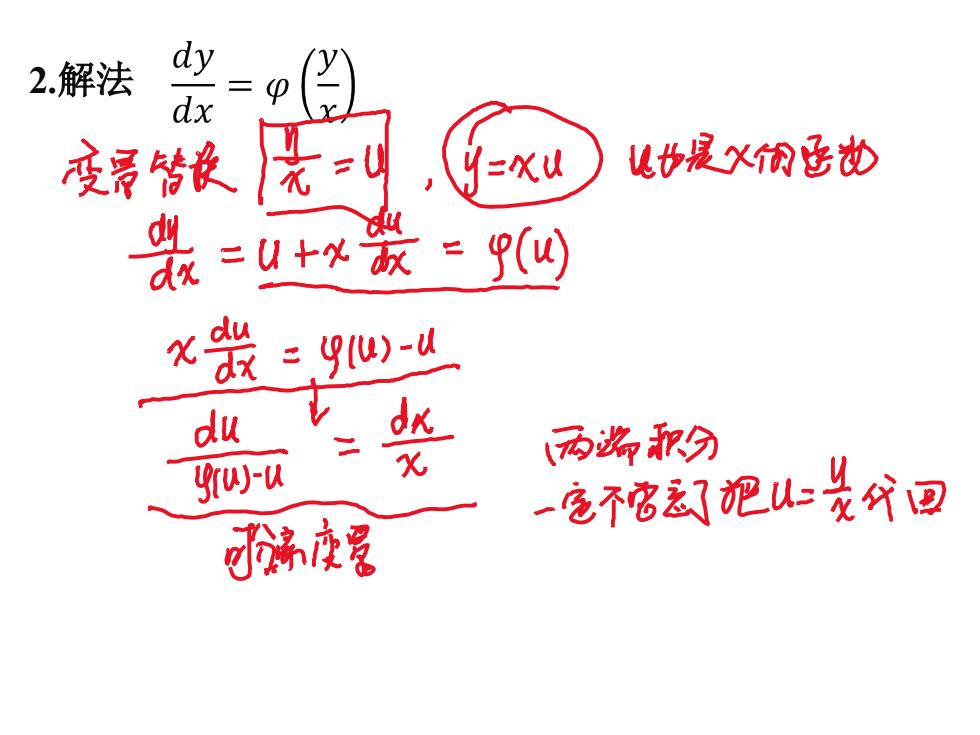 2.解法 dy/dx = φ(y/x)
变量替换 y/x = u , y=xu u也是x的函数
dy/dx = u + x du/dx = φ(u)
x du/dx = φ(u)-u
du/(φ(u)-u) = dx/x
两端积分
一定不要忘了把u=y/x代回
可分离变量